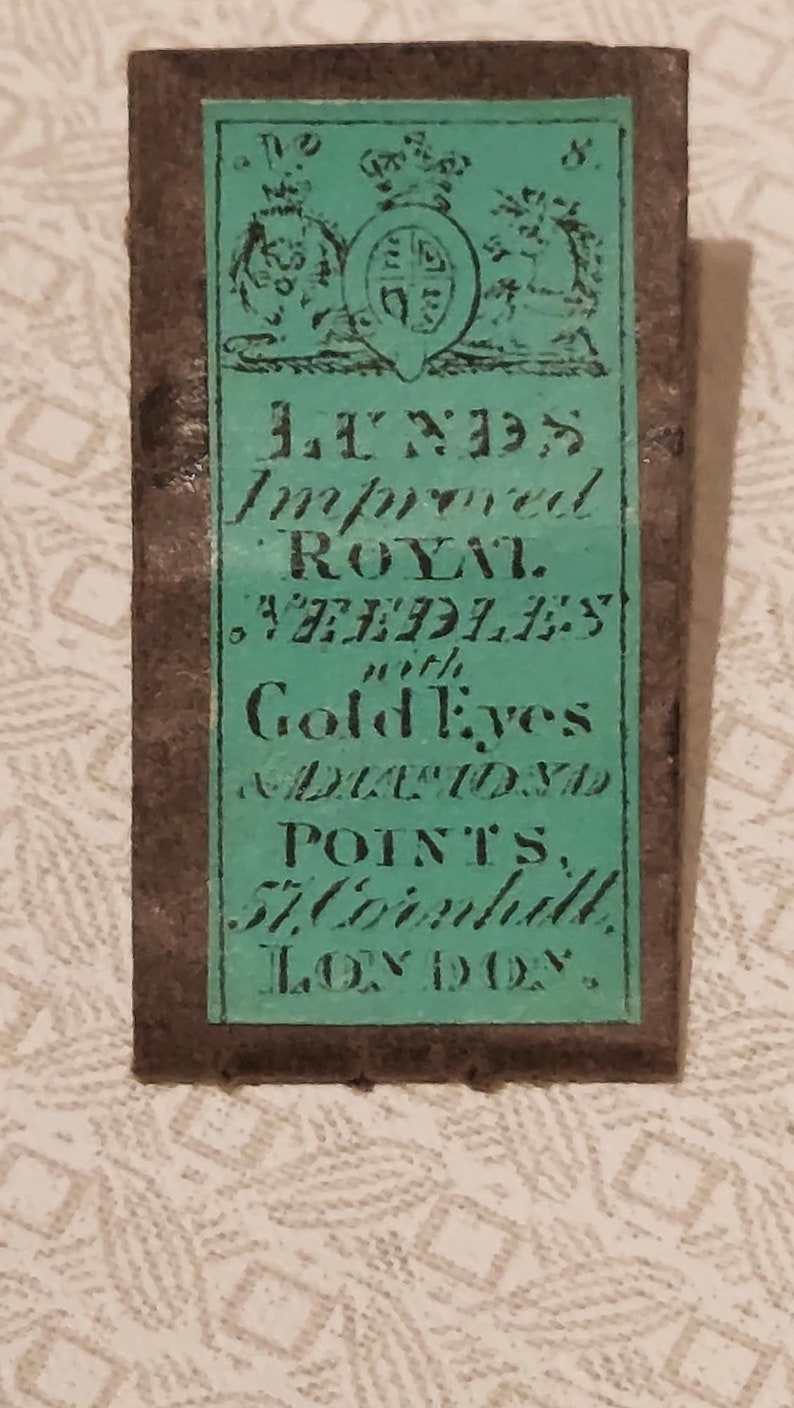 No 8.
LUNDS
Improved
ROYAL
NEEDLES
with
Gold Eyes
& DIAMOND
POINTS,
57, Cornhill,
LONDON.